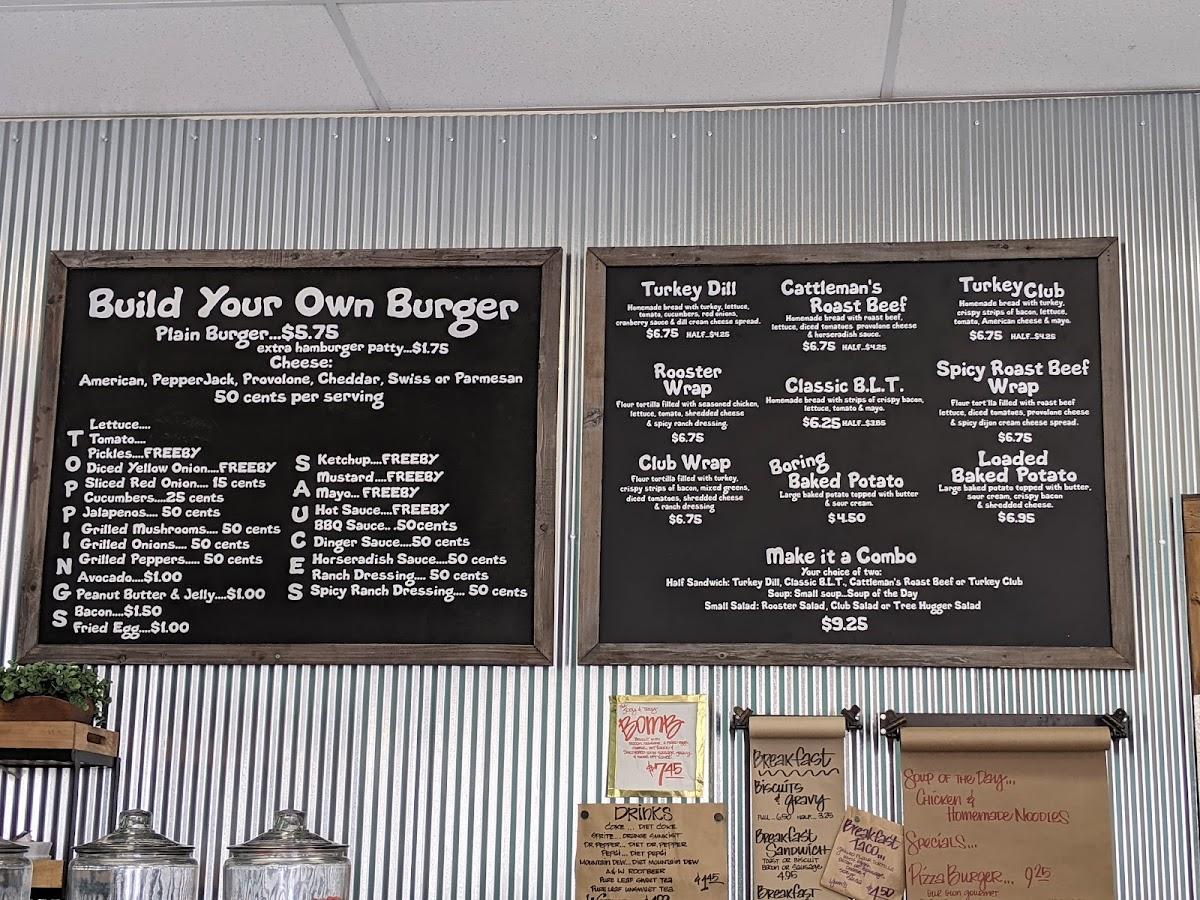 Build Your Own Burger
Plain Burger...$5.75
extra hamburger patty...$1.75
Cheese:
American, PepperJack, Provolone, Cheddar, Swiss or Parmesan
50 cents per serving
TOPPINGS
Lettuce....
Tomato....
Pickles....FREEBY
Diced Yellow Onion....FREEBY
Sliced Red Onion.... 15 cents
Cucumbers....25 cents
Jalapenos.... 50 cents
Grilled Mushrooms.... 50 cents
Grilled Onions.... 50 cents
Grilled Peppers..... 50 cents
Avocado....$1.00
Peanut Butter & Jelly....$1.00
Bacon....$1.50
Fried Egg....$1.00
SAUCES
Ketchup....FREEBY
Mustard....FREEBY
Mayo... FREEBY
Hot Sauce....FREEBY
BBQ Sauce.. .50cents
Dinger Sauce....50 cents
Horseradish Sauce....50 cents
Ranch Dressing.... 50 cents
Spicy Ranch Dressing.... 50 cents
Turkey Dill
Homemade bread with turkey, lettuce,
tomato, cucumbers, red onions,
cranberry sauce & dill cream cheese spread.
$6.75 HALF..$4.25
Cattleman's
Roast Beef
Homemade bread with roast beef,
lettuce, diced tomatoes provolone cheese
& horseradish sauce.
$6.75 HALF..$4.25
Turkey Club
Homemade bread with turkey,
crispy strips of bacon, lettuce,
tomato, American cheese & mayo.
$6.75 HALF..$4.25
Rooster
Wrap
Flour tortilla filled with seasoned chicken,
lettuce, tomato, shredded cheese
& spicy ranch dressing.
$6.75
Classic B.L.T.
Homemade bread with strips of crispy bacon,
lettuce, tomato & mayo.
$6.25 HALF...$3.85
Spicy Roast Beef
Wrap
Flour tortilla filled with roast beef
lettuce, diced tomatoes, provolone cheese
& spicy dijon cream cheese spread.
$6.75
Club Wrap
Flour tortilla filled with turkey,
crispy strips of bacon, mixed greens,
diced tomatoes, shredded cheese
& ranch dressing
$6.75
Boring
Baked Potato
Large baked potato topped with butter
& sour cream.
$4.50
Loaded
Baked Potato
Large baked potato topped with butter,
sour cream, crispy bacon
& shredded cheese.
$6.95
Make it a Combo
Your choice of two:
Half Sandwich: Turkey Dill, Classic B.L.T., Cattleman's Roast Beef or Turkey Club
Soup: Small soup...Soup of the Day
Small Salad: Rooster Salad, Club Salad or Tree Hugger Salad
$9.25
BOMB
$7.45
DRINKS
COKE ... DIET COKE
SPRITE... ORANGE SUNKIST
DR. PEPPER... DIET DR. PEPPER
PEPSI... DIET PEPSI
MOUNTAIN DEW...DIET MOUNTAIN DEW
A&W ROOTBEER
PURE LEAF SWEET TEA
PURE LEAF UNSWEET TEA
Breakfast
Biscuits
& gravy
FULL...6.50 HALF...3.25
Breakfast
Sandwich
TOAST OR BISCUIT
BACON OR SAUSAGE
4.95
Breakfast
Breakfast
Taco...
$4.50
SOUP OF THE DAY...
CHICKEN &
HOMEMADE NOODLES
SPECIALS...
PIZZA BURGER... 9.25
OUR OWN GOURMET